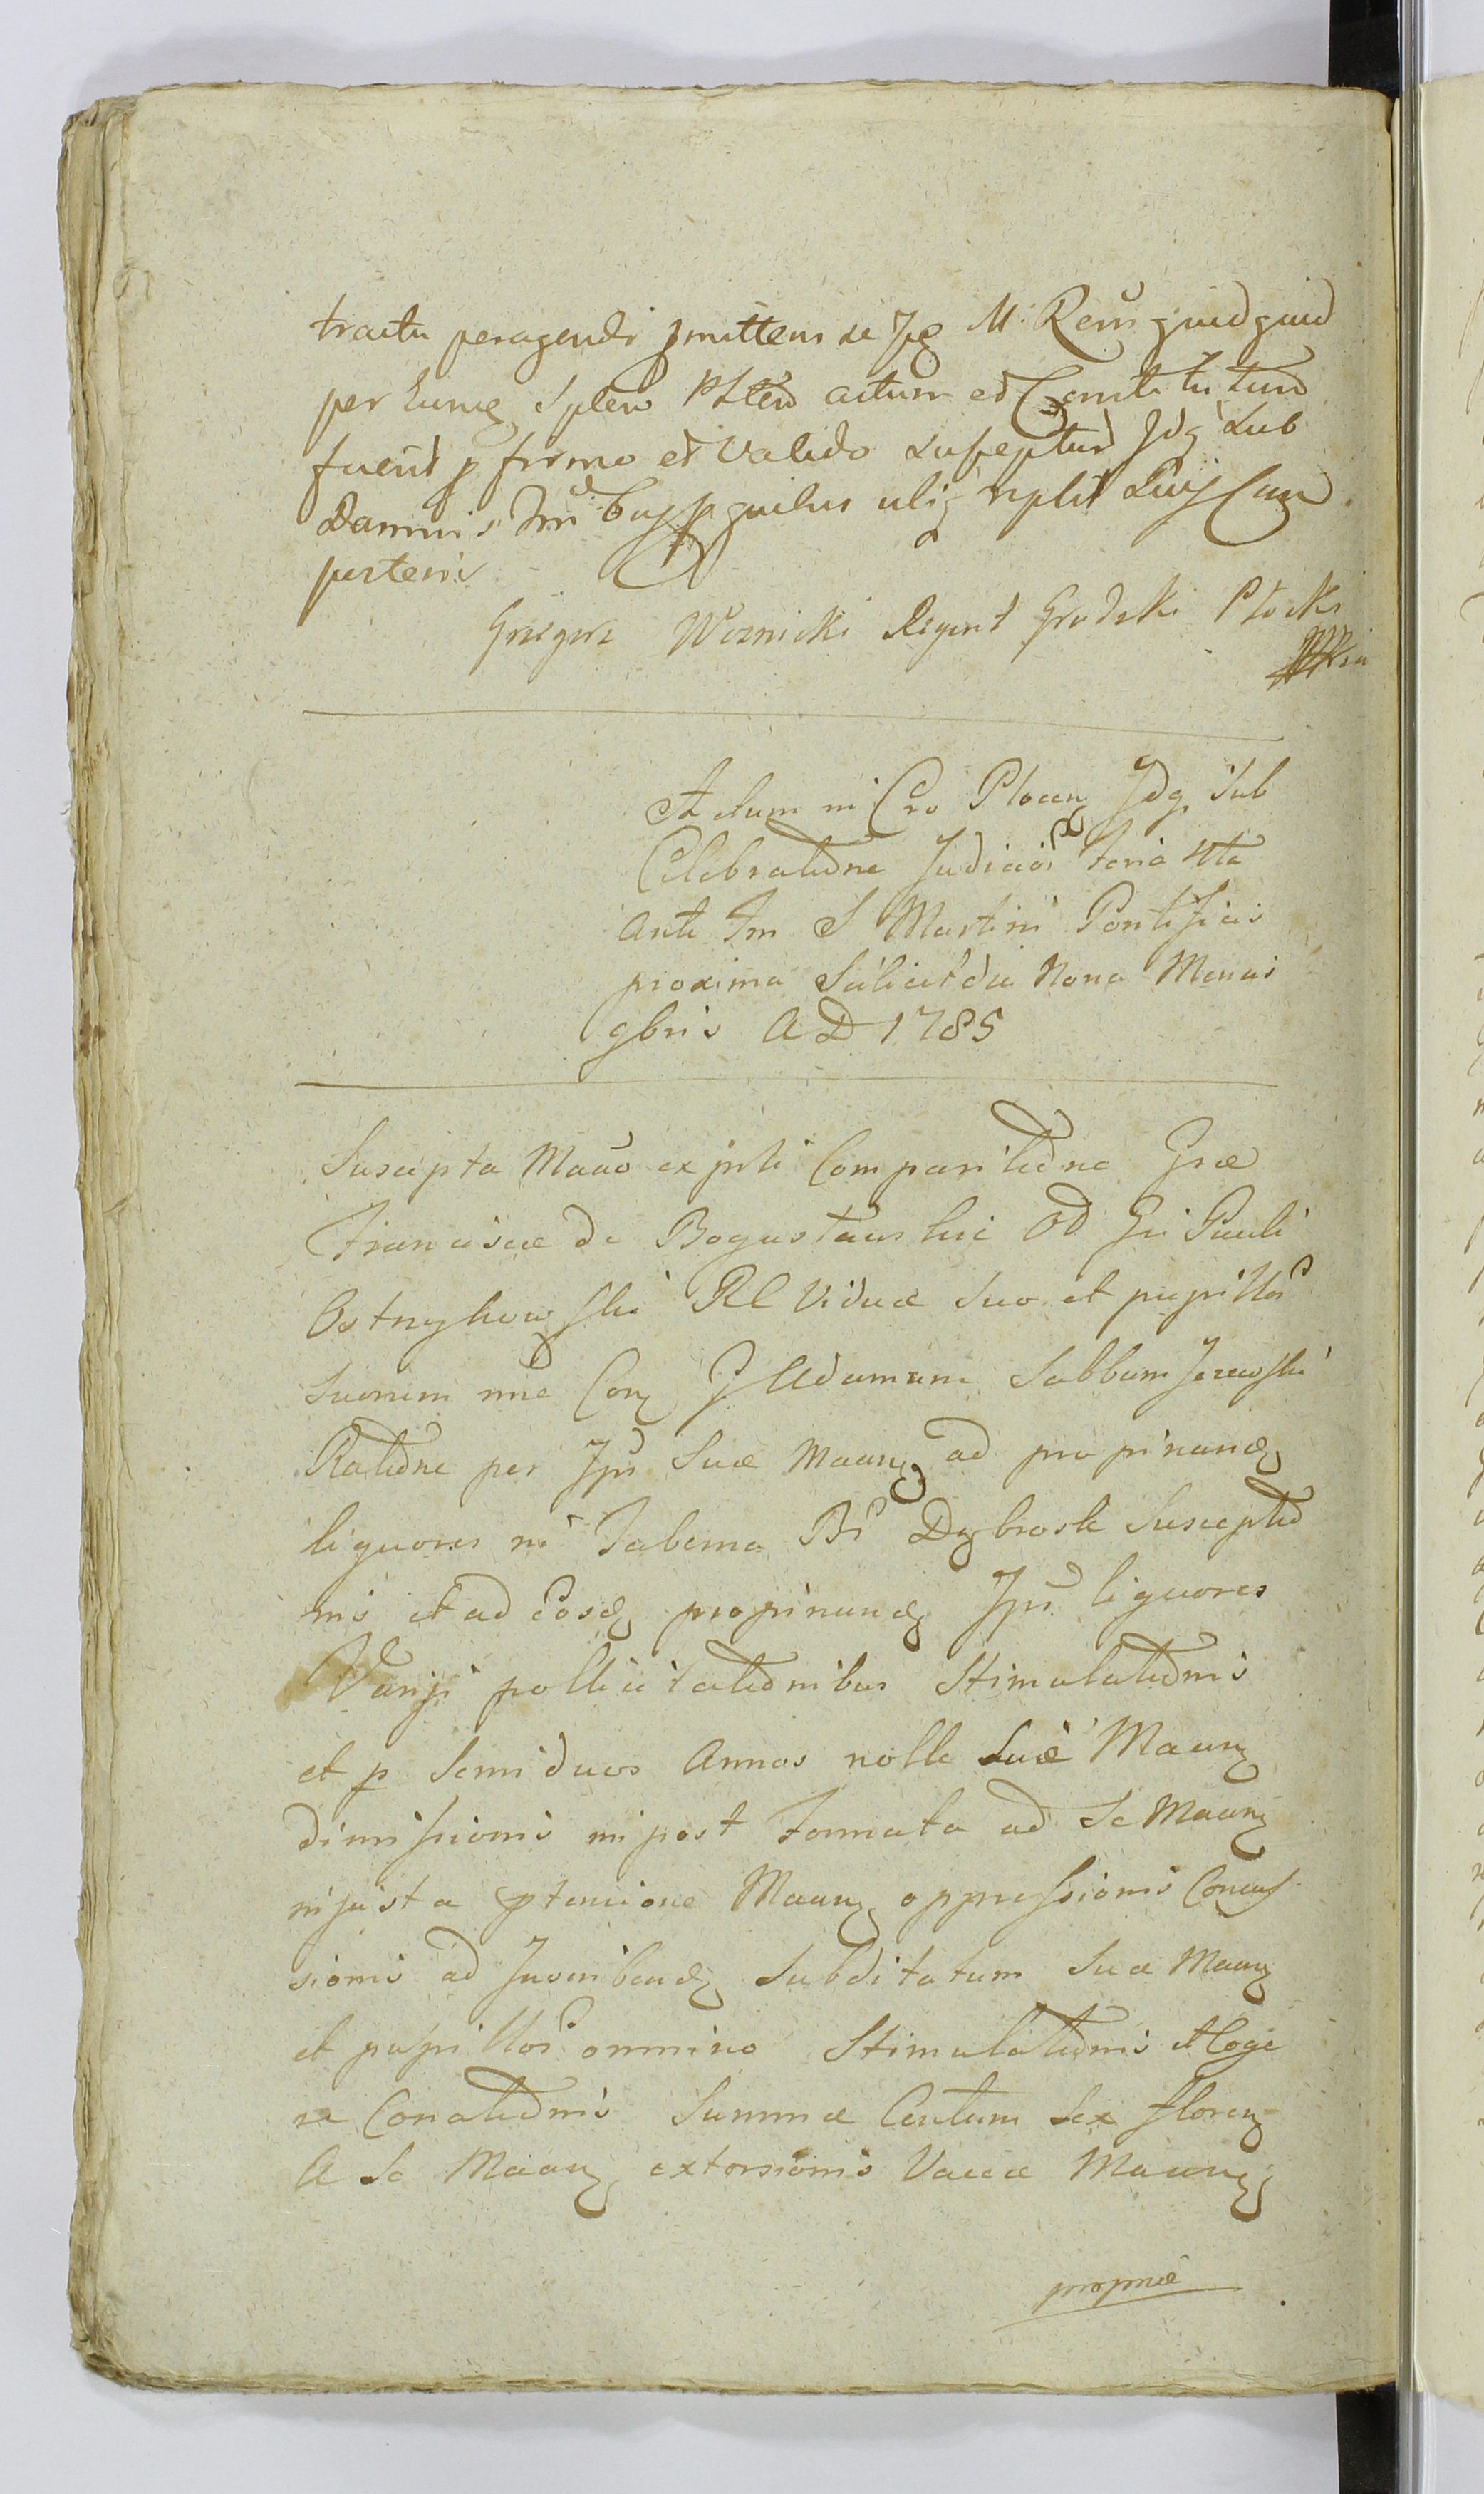 tractu peragendi pmittens se Ipe M. Rem quidquid
per Eung Splem Plten actum et Constitutum
fuerit p firmo et valido suscepturũ Idq Sub
Damnis
pertenis
Grzegorz Woznicki Regent Grodzki Płocki
mpria
Actum in Cro Plocen Idq Sub
Celebratione Judicior Feria 4ta
ante Fm S Martini Pontificis
proxima Scilicet die Nona Mensis
9bris AD 1785
Suscepta Maño ex psti Comparitione Gsæ
Franciscæ de Bogustawskie Od Gsi Pauli
Ostrzykowski RC Viduæ Suo et pupillor
Suorum nne Con G Adamum Sabbum Jezewski
Ratione per Ipũ Suæ Maang ad propinand
liquores in Taberna Br Dąbrosk Susceptio
nis et ad Eosd propinand Ipũ liquores
Varijs pollicitationibus Stimulationis
et p Semi duos Annos nolle Suæ Maang
dimissionis inpost Formata ad Se Maang
injusta ptensione Maang oppressionis Concus
sionis ad Inscribend Subditatum Suæ Maang
et pupillor omnino Stimulationis et Coge
re Conationis Summæ Centum Sex floren
A Se Maang extorsionis Vaccæ Maang
propriæ